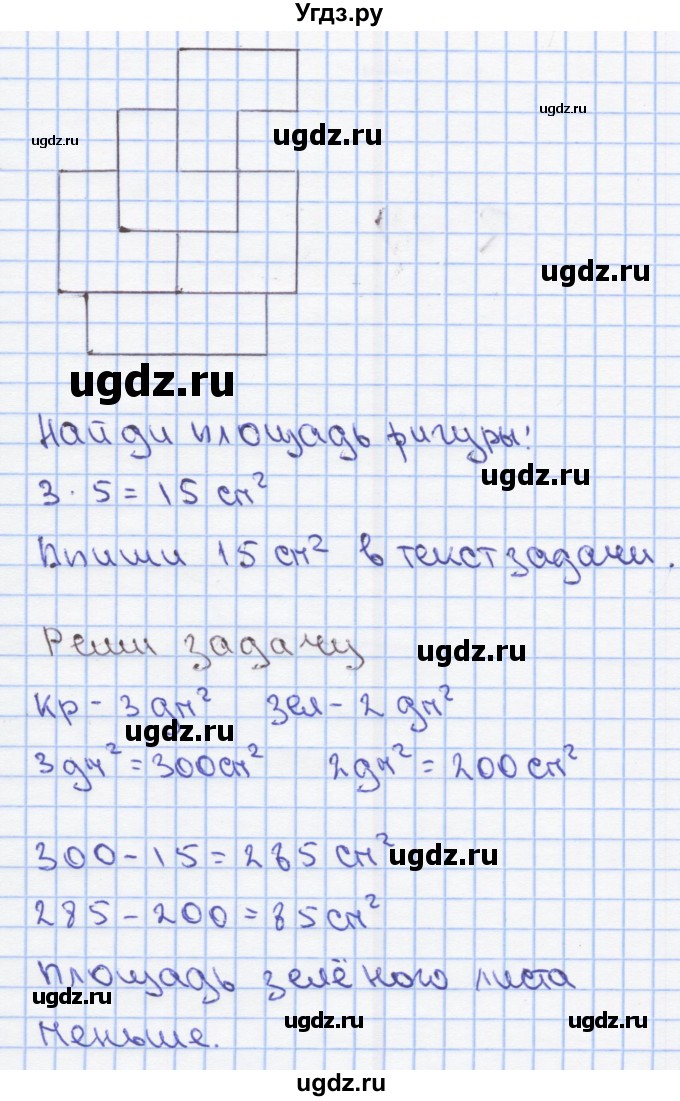 Угдз.ру
ugdz.ru
ugdz.ru
ugdz.ru
ugdz.ru
ugdz.ru
Найди площадь фигуры:
ugdz.ru
3 · 5 = 15 см²
Впиши 15 см² в текст задачи.
Реши задачу
ugdz.ru
Кр - 3 дм² зел - 2 дм²
ugdz.ru
3 дм² = 300 см² 2 дм² = 200 см²
300 - 15 = 285 см²
ugdz.ru
285 - 200 = 85 см²
Площадь зелёного листа
ugdz.ru
меньше.
ugdz.ru
ugdz.ru
ugdz.ru